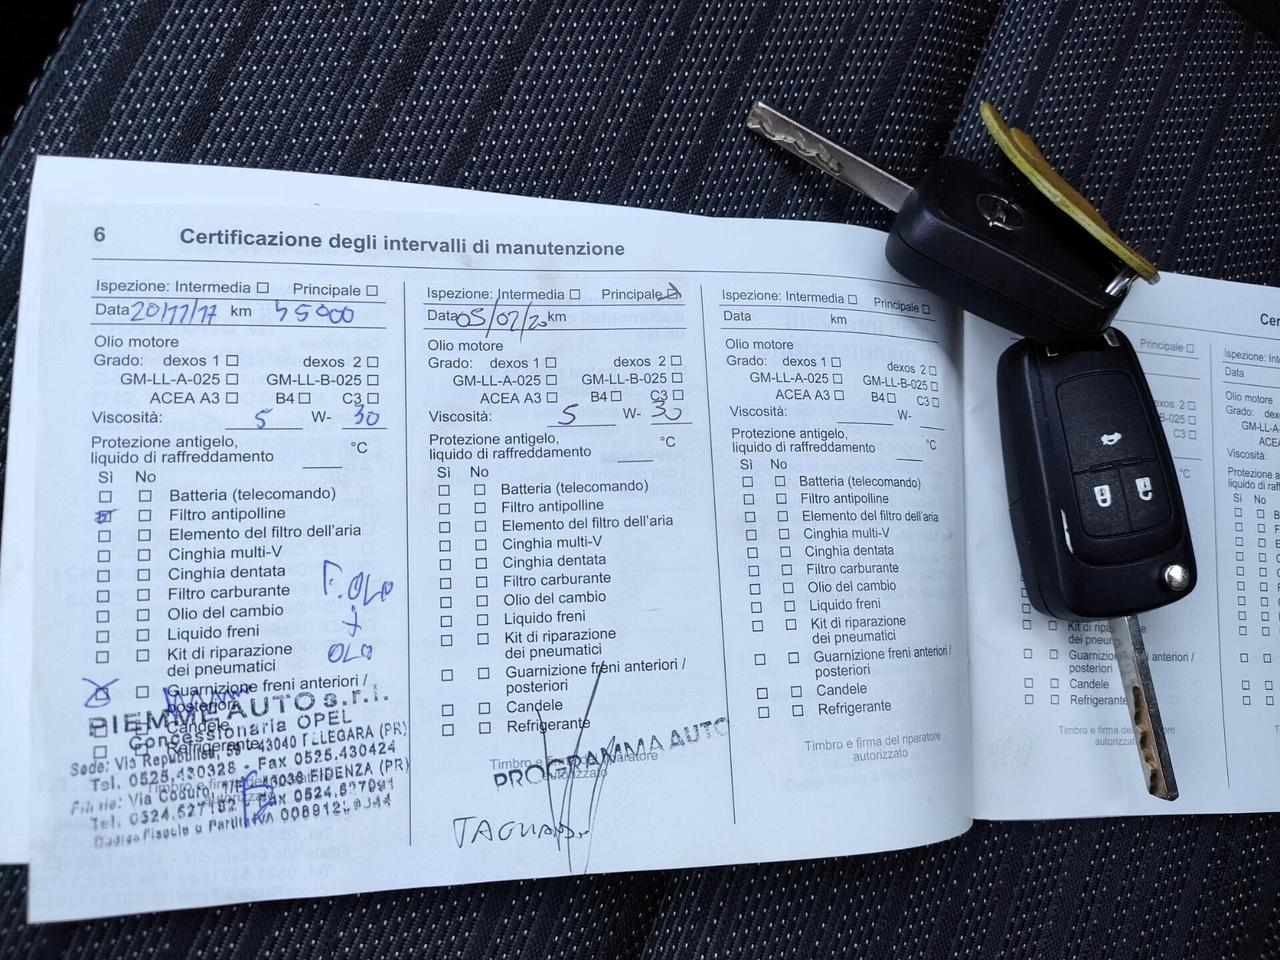 6 Certificazione degli intervalli di manutenzione
Ispezione: Intermedia Principale
Data 20/11/17 km
Olio motore
Grado: dexos 1 dexos 2
GM-LL-A-025 GM-LL-B-025
ACEA A3 B4 C3
Viscosità: 5 W- 30
Protezione antigelo,
liquido di raffreddamento °C
Sì No
Batteria (telecomando)
Filtro antipolline
Elemento del filtro dell'aria
Cinghia multi-V
Cinghia dentata
Filtro carburante F. OLIO
Olio del cambio +
Liquido freni
Kit di riparazione OLIO
dei pneumatici
Guarnizione freni anteriori /
posteriori
Candele
Refrigerante
PIEMME AUTO s.r.l.
Concessionaria OPEL
Sede: Via Repubblica, 59 - 43040 (PR)
Tel. 0525.430328 - Fax 0525.430424
Filiale: Via 43036 FIDENZA (PR)
Tel. 0524.527182 Fax
Codice Fiscale e Partita IVA
Ispezione: Intermedia Principale
Data 05/02/20 km
Olio motore
Grado: dexos 1 dexos 2
GM-LL-A-025 GM-LL-B-025
ACEA A3 B4 C3
Viscosità: 5 W- 30
Protezione antigelo,
liquido di raffreddamento °C
Sì No
Batteria (telecomando)
Filtro antipolline
Elemento del filtro dell'aria
Cinghia multi-V
Cinghia dentata
Filtro carburante
Olio del cambio
Liquido freni
Kit di riparazione
dei pneumatici
Guarnizione freni anteriori /
posteriori
Candele
Refrigerante
Timbro e firma del riparatore
autorizzato
PROGRAMMA AUTO
Ispezione: Intermedia Principale
Data km
Olio motore
Grado: dexos 1 dexos 2
GM-LL-A-025 GM-LL-B-025
ACEA A3 B4 C3
Viscosità: W-
Protezione antigelo,
liquido di raffreddamento °C
Sì No
Batteria (telecomando)
Filtro antipolline
Elemento del filtro dell'aria
Cinghia multi-V
Cinghia dentata
Filtro carburante
Olio del cambio
Liquido freni
Kit di riparazione
dei pneumatici
Guarnizione freni anteriori /
posteriori
Candele
Refrigerante
Timbro e firma del riparatore
autorizzato
Principale
2
C3
°C
Kit di
dei
Guarnizione anteriori /
posteriori
Candele
Refrigerante
Timbro e firma del riparatore
autorizzato
Ispezione:
Data
Olio motore
Viscosità:
Sì No